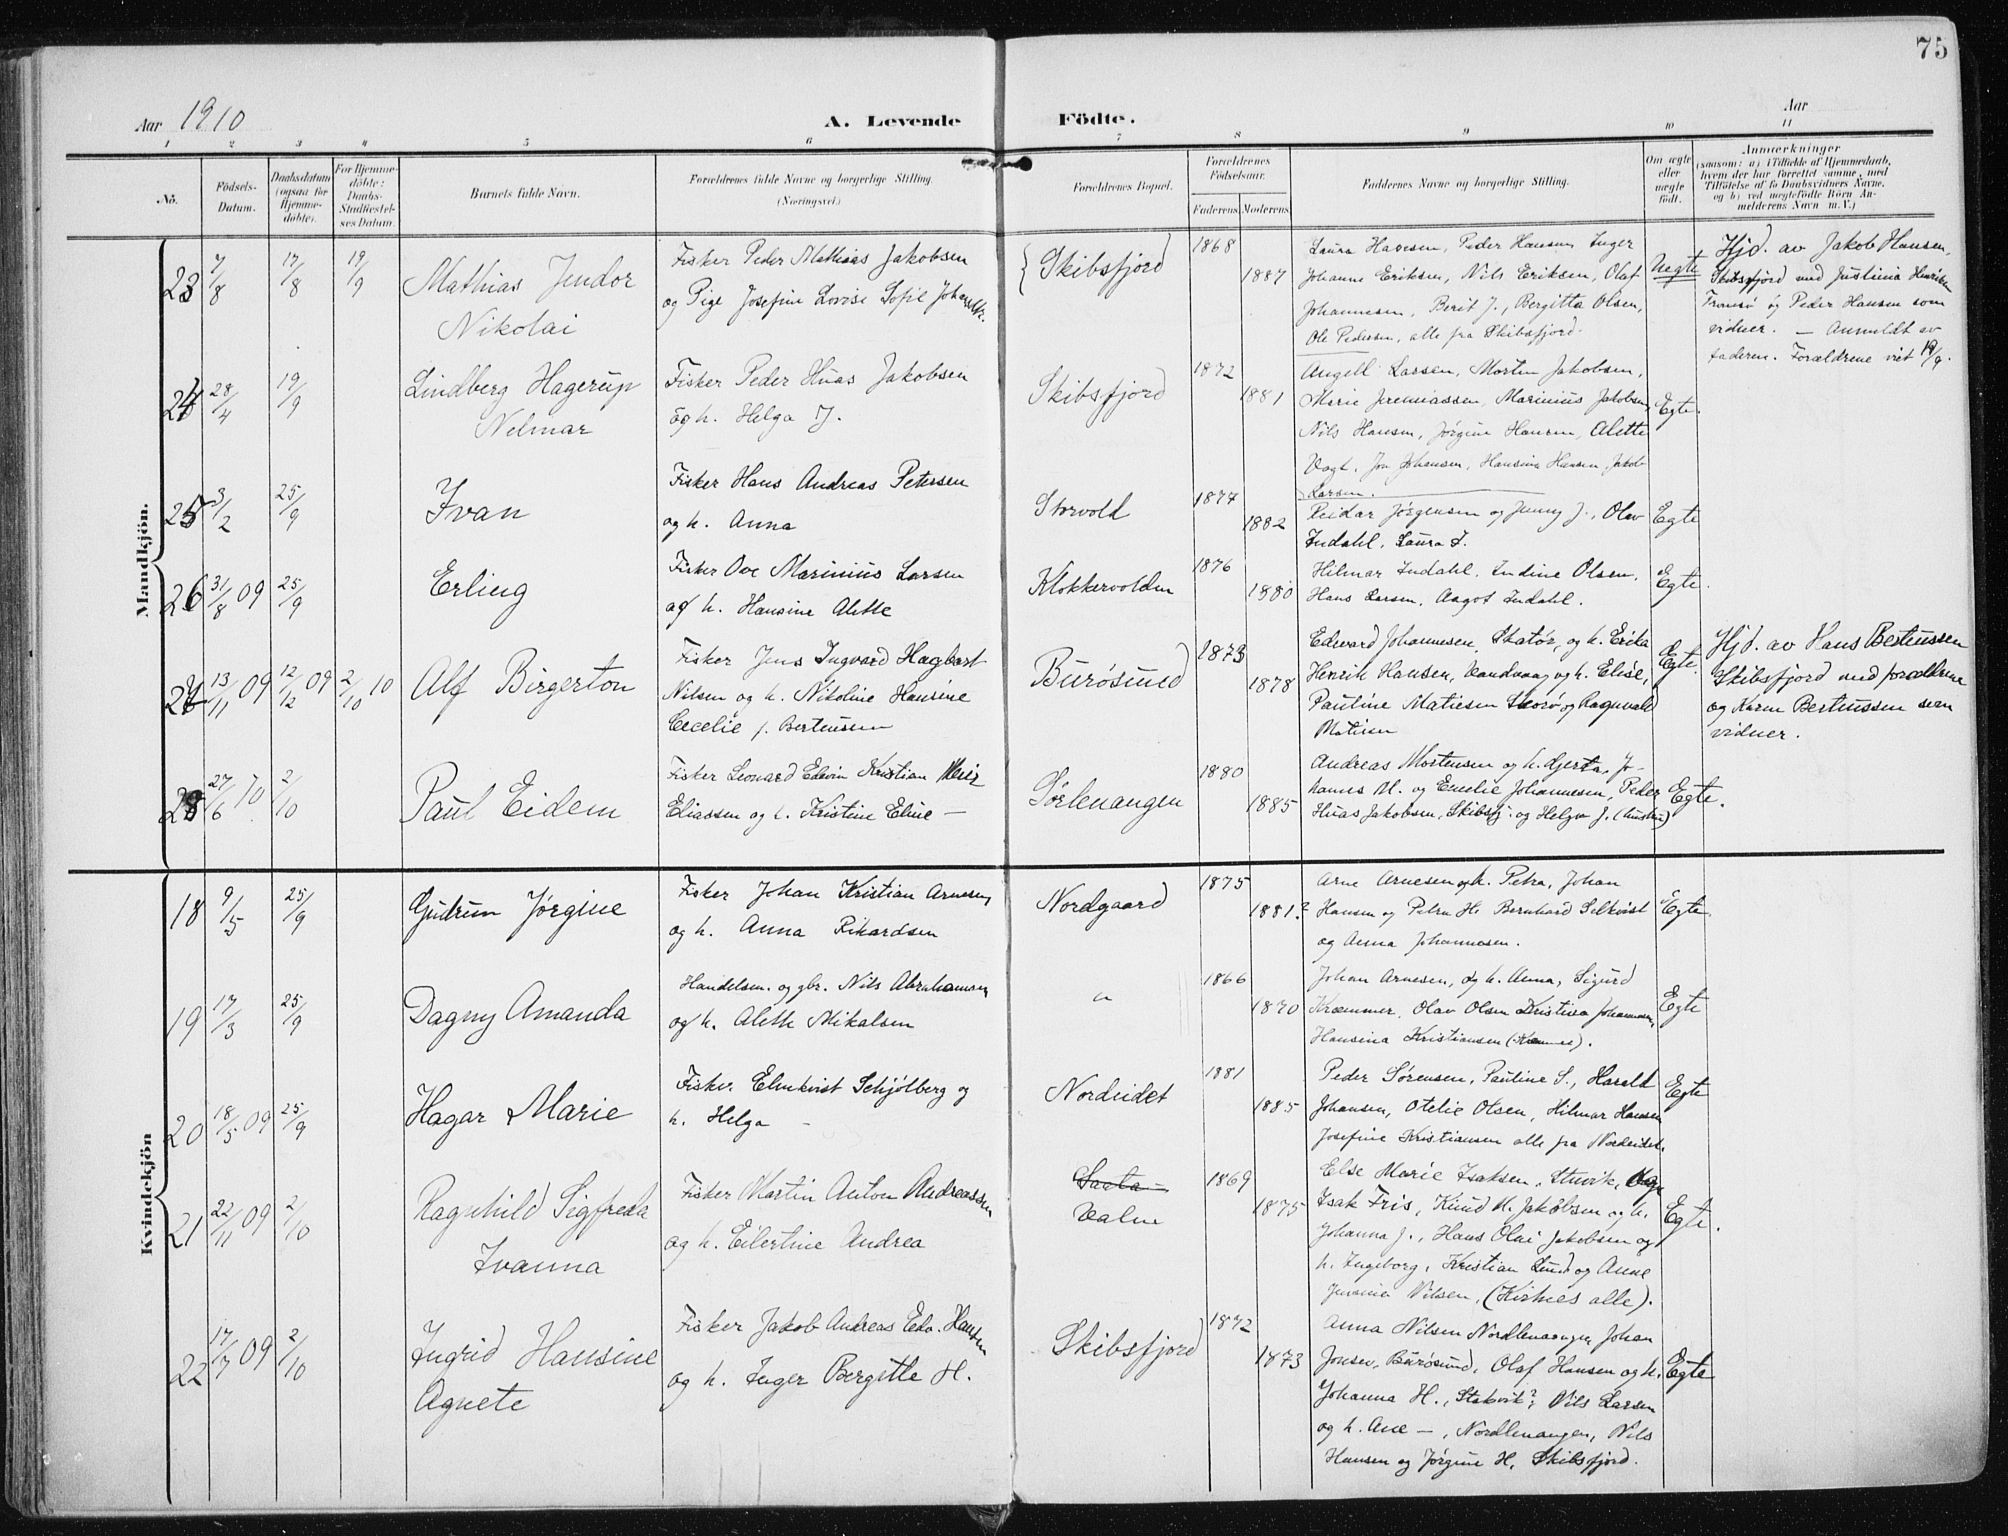 75
Aar 1910
A. Levende Födte.
Aar
1 2 3 4 5 6 7 8 9 10 11
No.
Födsels-Datum.
Daabsdatum (ogsaa for Hjemmedöbte).
For Hjemmedöbte: Daabs-Stadfæstelses Datum.
Barnets fulde Navn.
Forældrenes fulde Navne og borgerlige Stilling. (Næringsvei.)
Forældrenes Bopæl.
Forældrenes Födselsaar.
Faderens. Moderens.
Faddernes Navne og borgerlige Stilling.
Om ægte eller uægte födt.
Anmærkninger (saasom: a) i Tilfælde af Hjemmedaab, hvem der har forrettet samme, med Tilföielse af to Daabsvidners Navne, og b) ved uægtefödte Börn Anmelderens Navn m. V.)
Mandkjön.
23 7/8 17/8 19/9 Mathias Jendor Nikolai
Fisker Peder Mathias Jakobsen
og Pige Josefine Lovise Sofie
Skibsfjord 1868 1887
Laura Hansen, Peder Hansen, Inger
Johanne Eriksen, Nils Eriksen, Olaf
Johannesen, Berit J., Bergitta Olsen,
Ole Pedersen, alle fra Skibsfjord.
Uegte
Hjd. av Jakob Hansen,
Skibsfjord med Justina Henriksen
Tromsø og Peder Hansen som
vidner. — Anmeldt av
faderen. Forældrene viet 19/9.
24 28/4 19/9 Lindberg Hagerup Nelmar
Fisker Peder Huas Jakobsen
og h. Helga J.
Skibsfjord 1872 1881
Angell Larsen, Morten Jakobsen,
Marie Jeremiassen, Marinius Jakobsen,
Nils Hansen, Jørgine Hansen, Alette
Vogt, Jon Johansen, Hansina Hansen, Jakob
Larsen.
Egte.
25 3/2 25/9 Ivan
Fisker Hans Andreas Petersen
og h. Anna
Storvold 1877 1882
Reidar Jørgensen og Jenny J., Olav
Indahl, Laura I.
Egte
26 31/8 09 25/9 Erling
Fisker Ove Marinius Larsen
og h. Hansine Alette
Klokkervolden 1876 1880
Hilmar Indahl, Indine Olsen,
Hans Larsen, Aagot Indahl.
Egte.
27 13/11 09 12/12 09 2/10 10 Alf Birgerton
Fisker Jens Ingvard Hagbart
Nilsen og h. Nikoline Hansine
Cecelie f. Berteussen
Burøsund 1873 1878
Edvard Johannesen, Skatør, og h. Erika
Henrik Hansen, Vandvaag og h. Elise,
Pauline Matiesen Skorø og Ragnvald
Matisen
Egte.
Hjd. av Hans Berteussen
Skibsfjord med forældrene
og Karen Berteussen som
vidner.
28 27/6 10 2/10 Paul Eidem
Fisker Leonard Edvin Kristian
Eliassen og h. Kristine Eline —
Sørlenangen 1880 1885
Andreas Mortensen og h. Gjerta, Jo-
hannes M. og Emelie Johannesen, Peder
Huas Jakobsen, Skibsfj. og Helga J.
Egte.
Kvindekjön
18 9/5 25/9 Gudrun Jørgine
Fisker Johan Kristian Arnesen,
og h. Anna Rikardsen
Nordgaard 1875 1881?
Arne Arnesen og h. Petra, Johan
Hansen og Petra H. Bernhard Selkvist
og Anna Johannesen.
Egte.
19 17/3 25/9 Dagny Amanda
Handelsm. og gbr. Nils Abrahamsen
og h. Aleth Mikalsen
" 1866 1870
Johan Arnesen, og h. Anna, Sigurd
Kræmmer, Olav Olsen Kristina Johannesen,
Hansina Kristiansen
Egte
20 18/5 09 25/9 Hagar Marie
Fisker Elmkvist Schjølberg og
h. Helga —
Nordeidet 1881 1885
Peder Sørensen, Pauline S., Harald
Johansen, Otelie Olsen, Hilmar Hansen
Josefine Kristiansen alle fra Nordeidet.
Egte
21 22/11 09 2/10 Ragnhild Sigfreda Ivanna
Fisker Martin Anton Andreassen
og h. Eilertine Andrea
Valne 1869 1875
Else Marie Isaksen, Stuvik,
Isak Fris, Knud M. Jakobsen og h.
Johanna J., Hans Olai Jakobsen og
h. Ingeborg, Kristian Lund og Anne
Nilsen, (Kirknes alle).
Egte.
22 17/7 09 2/10 Ingrid Hansine Agnete
Fisker Jakob Andreas Edv. Hansen
og h. Inger Bergitte H.
Skibsfjord 1872 1873
Anna Nilsen Nordlenangen, Johan
Jensen, Burøsund, Olaf Hansen og h.
Johanna H., Stakvik?, Nils Larsen
og h. Ane —, Nordlenangen, Nils
Hansen og Jørgine H, Skibsfjord.
Egte